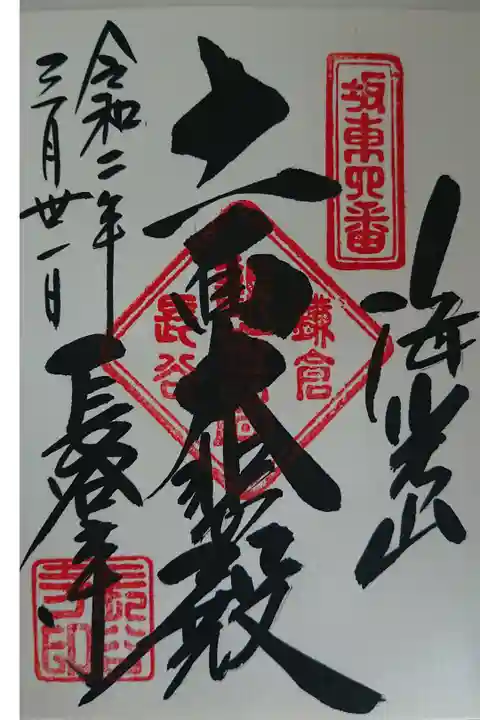 坂東四番
海光山
十一面大悲殿
鎌倉
長谷
令和二年
三月廿一日
長谷寺
長谷寺印